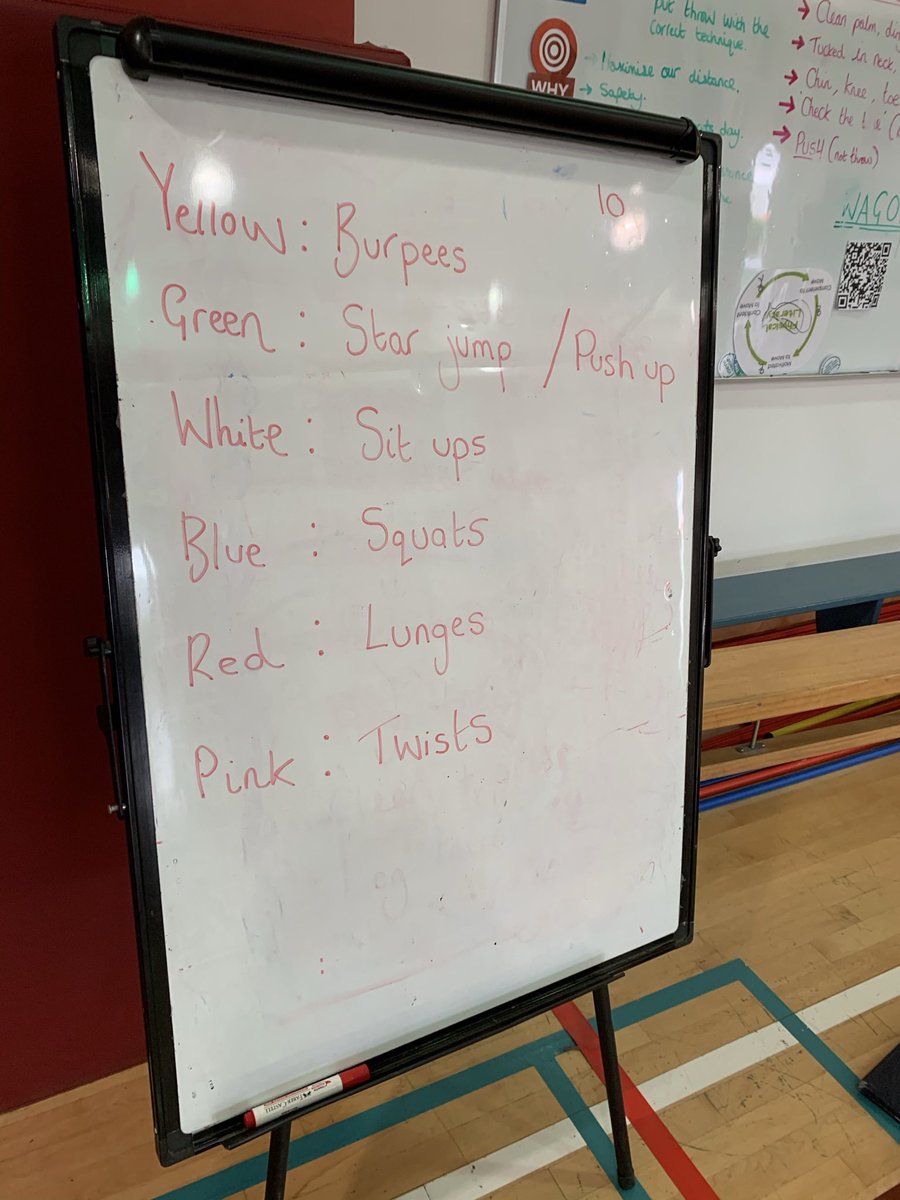 put throw with the
correct technique.
WHY
→ Maximise our distance.
→ Safety.
→ Clean palm,
→ Tucked in neck,
→ Chin, knee, toe
→ Check the
→ Push (not throw)
WAGO
Physical
Literacy
10
Yellow : Burpees
Green : Star jump / Push up
White : Sit ups
Blue : Squats
Red : Lunges
Pink : Twists
FABER-CASTELL